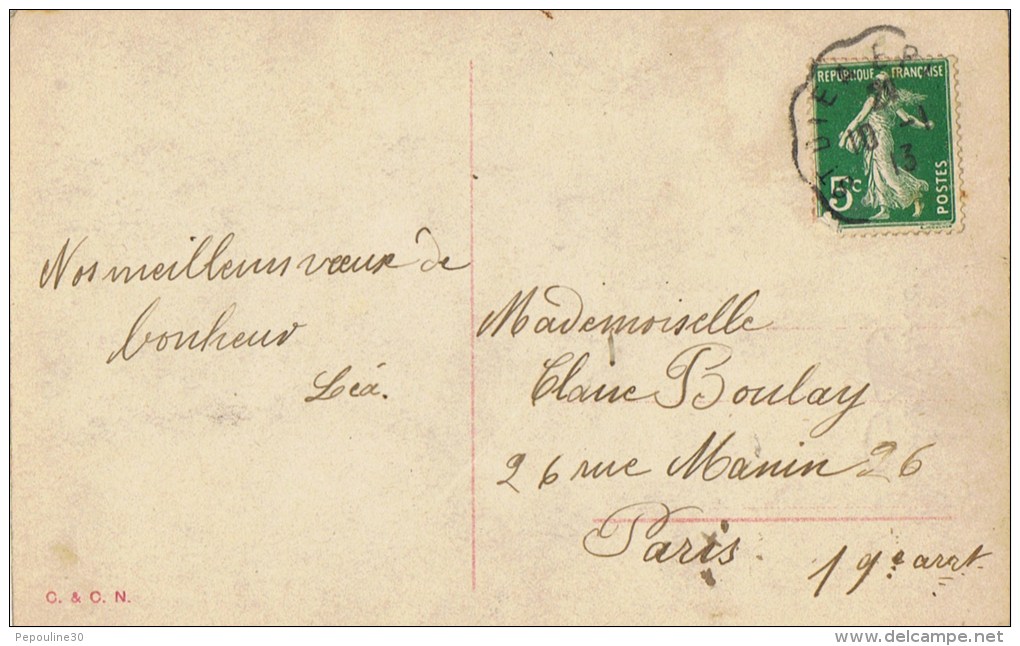 Nos meilleurs vœux de
bonheur
Léa.
RÉPUBLIQUE FRANÇAISE
5c
POSTES
10 -1
13
Mademoiselle
Claire Boulay
26 rue Manin 26
Paris
19e arrt
C. & C. N.
Pepouline30
delcampe.net